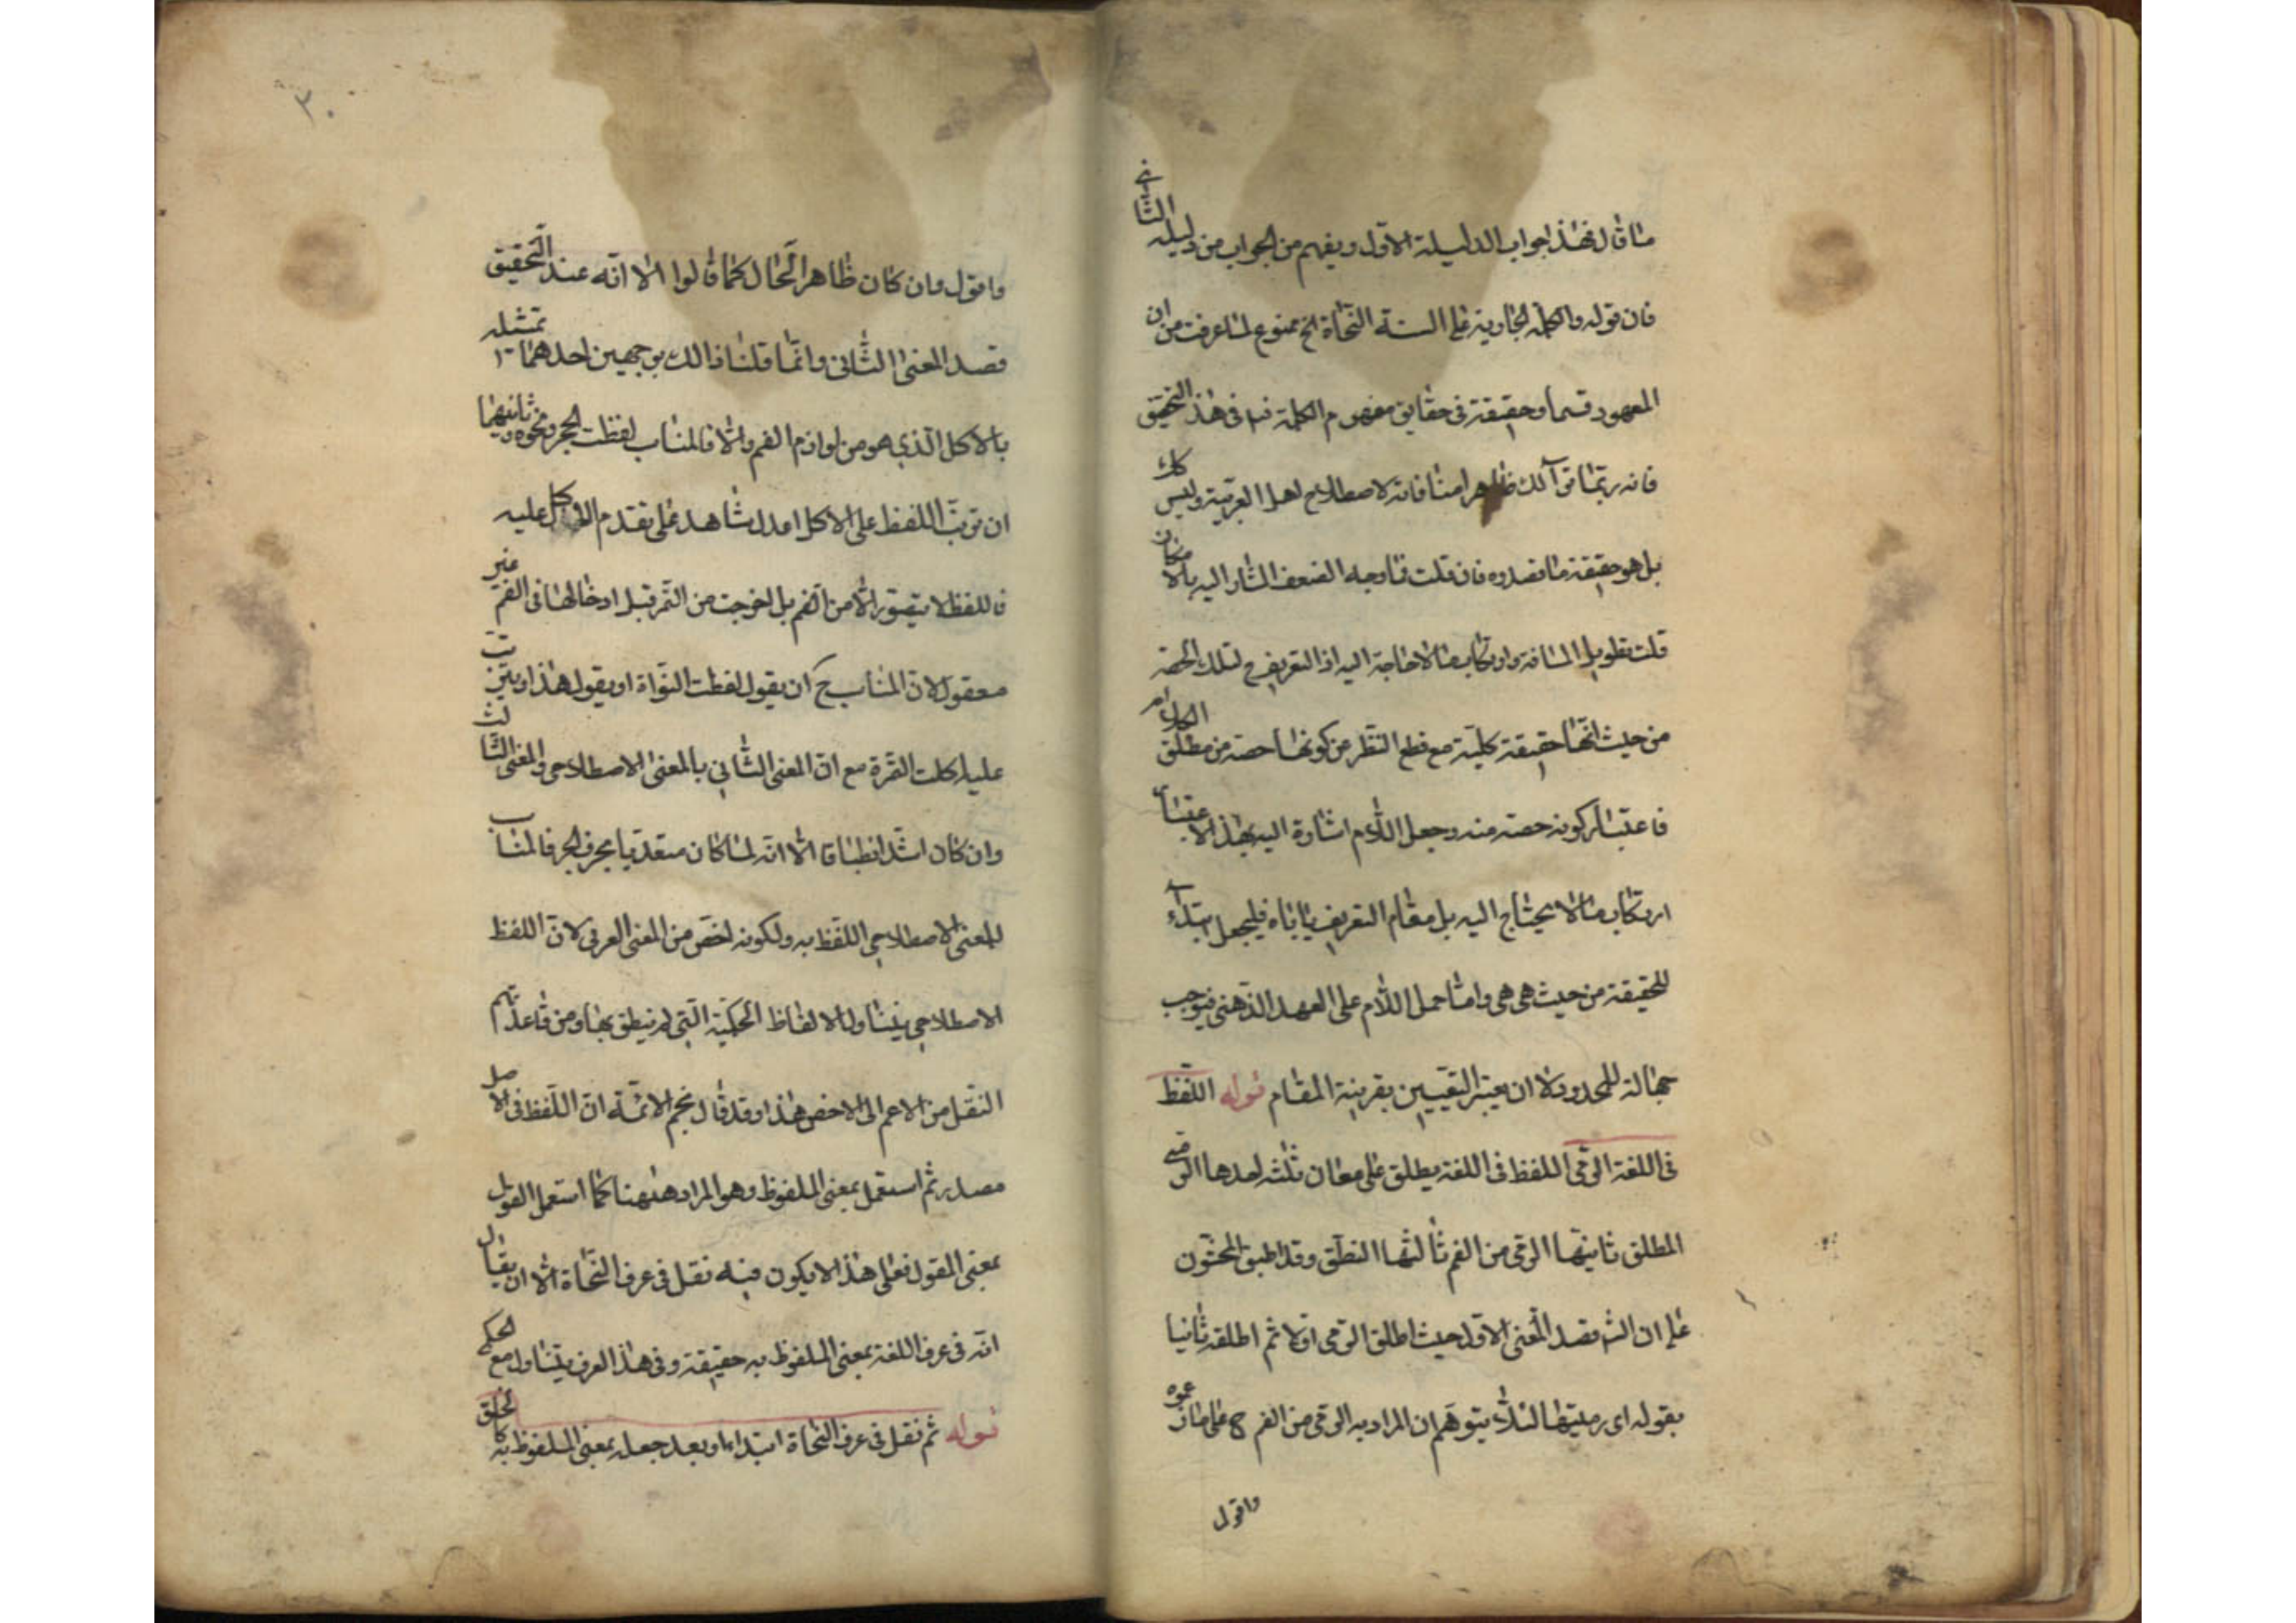 ما قال فهذا جواب الدليله الاول ويفهم من الجواب من دليله الثاني
فان قوله والكلمة الجارية على السنة النحاة الخ ممنوع لما عرفت من ان
المعهود قسما وحقيقة في حقايق مفهوم الكلمة في هذا التحقيق
فانه ربما ظاهرا منافاته لاصطلاح اهل العربية وليس كك
بل هو حقيقة ما قصدوه فان قلت فما وجه الضعف المشار اليه بالامكان
قلت تطويل المسافة وارتكاب ما لا حاجة اليه اذ التعريف ح لتلك الحصة
من حيث انها حقيقة كلية مع قطع النظر من كونها حصة من مطلق
فاعتبار كونه حصة منه وجعل اللام اشارة اليه بهذا الاعتبار
ارتكاب ما لا يحتاج اليه بل مقام التعريف يأباه فليجعل ابتداء
للحقيقة من حيث هي هي واما حمل اللام على العهد الذهني فيوجب
جهالة للمحدود الا ان يعتبر التعيين بقرينة المقام قوله اللفظ
في اللغة الرمي اللفظ في اللغة يطلق على معان ثلثة احدها الرمي
المطلق ثانيها الرمي من الفم ثالثها النطق وقد اطبق المحشون
على ان الش قصد المعنى الاول حيث اطلق الرمي اولا ثم اطلقه ثانيا
بقوله اي رميتها لئلا يتوهم ان المراد به الرمي من الفم ح على ما
واقول
٣٠
واقول وان كان ظاهر الحال كما قالوا الا انه عند التحقيق
قصد المعنى الثاني وانما قلنا ذالك بوجهين احدهما تمثيله
بالاكل الذي هو من لوازم الفم والا فالمناسب لفظت الحجر ونحوه وثانيهما
ان ترتب اللفظ على الاكل اعدل شاهد على تقدم الاكل عليه
فاللفظ لا يتصور الا من الفم بل اخرجت من التمر قبل ادخالها في الفم غير
معقول لان المناسب ح ان يقول لفظت النواة او يقول هذا
عليه اكلت التمرة مع ان المعنى الثاني بالمعنى الاصطلاحي والمعنى الثالث
وان كان اشد انطباقا الا انه لما كان متعديا بحرف الجر فالمناسب
للمعنى الاصطلاحي اللفظ به ولكونه اخص من المعنى العرفي لان اللفظ
الاصطلاحي يتناول الالفاظ الحكمية التي لم ينطق بها ومن قاعدتهم
النقل من الاعم الى الاخص هذا وقد قال نجم الائمة ان اللفظ في الاصل
مصدر ثم استعمل بمعنى الملفوظ وهو المراد ههنا كما استعمل القول
بمعنى المقول فعلى هذا لا يكون فيه نقل في عرف النحاة الا ان يقال
انه في عرف اللغة بمعنى الملفوظ به حقيقة وفي هذا العرف يتناول مع الحكمي
قوله ثم نقل في عرف النحاة ابتداء او بعد جعله بمعنى الملفوظ به كالخلق